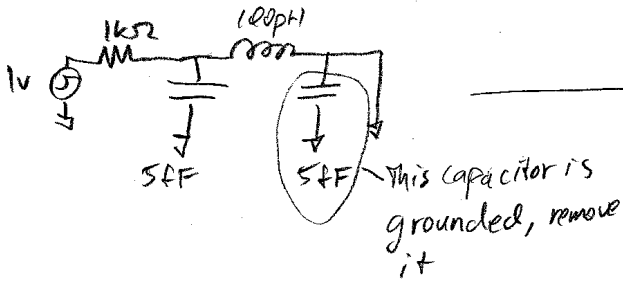 100pH
1kΩ
1v
5fF
5fF
This capacitor is
grounded, remove
it